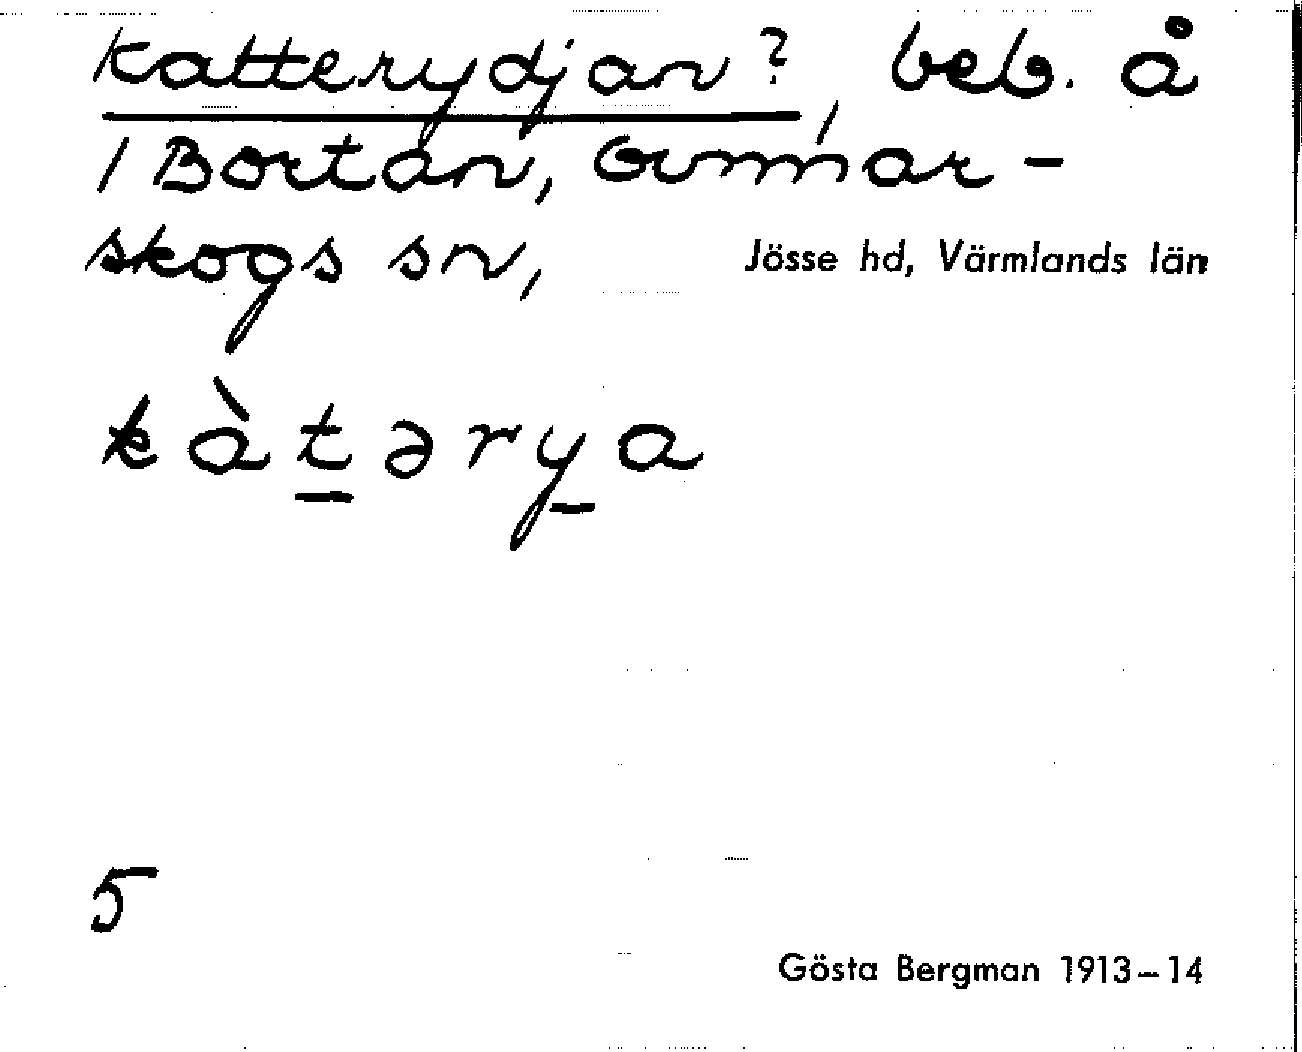 Katterydjan?, beb. å
1 Bortan, Gunnar-
skogs sn, Jösse hd, Värmlands län
kàt̲əry̲a
5
Gösta Bergman 1913–14